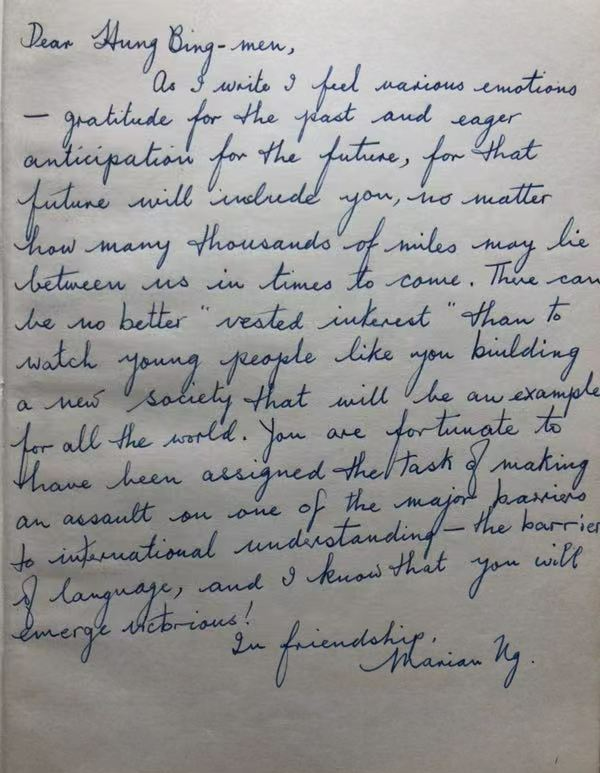 Dear Hung Bing-men,
As I write I feel various emotions
— gratitude for the past and eager
anticipation for the future, for that
future will include you, no matter
how many thousands of miles may lie
between us in times to come. There can
be no better "vested interest" than to
watch young people like you building
a new society that will be an example
for all the world. You are fortunate to
have been assigned the task of making
an assault on one of the major barriers
to international understanding — the barrier
of language, and I know that you will
emerge victorious!
In friendship,
Marian Ng.